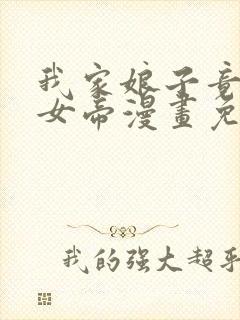 我家娘子竟
女帝漫畫免
我的强大超乎